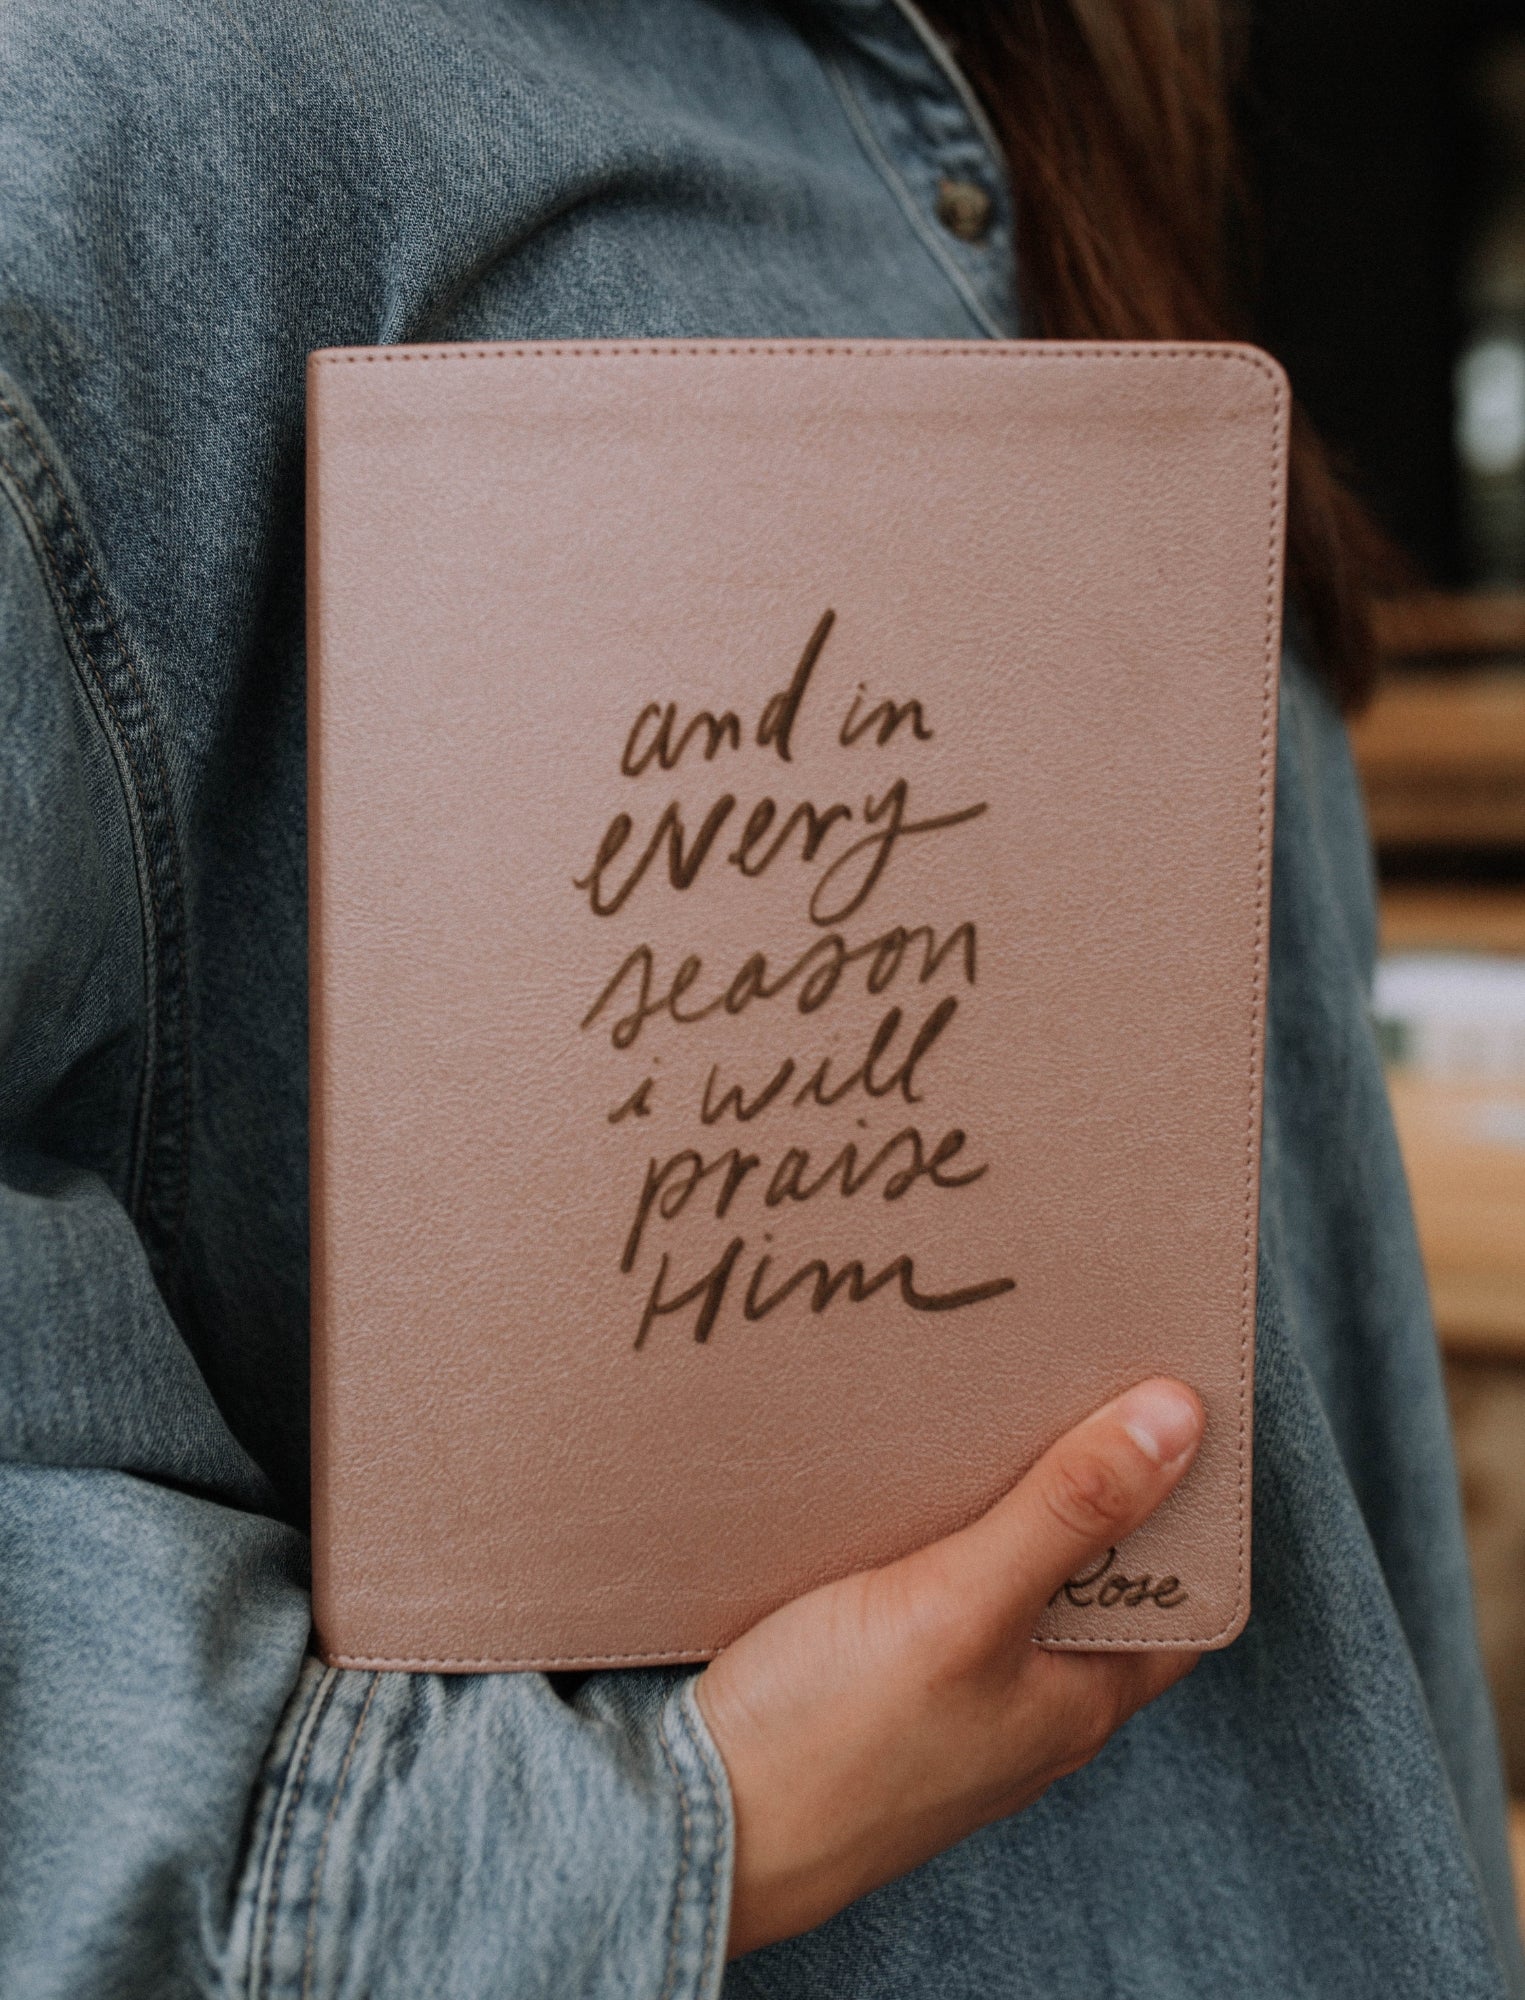 and in
every
season
i will
praise
Him
Rose